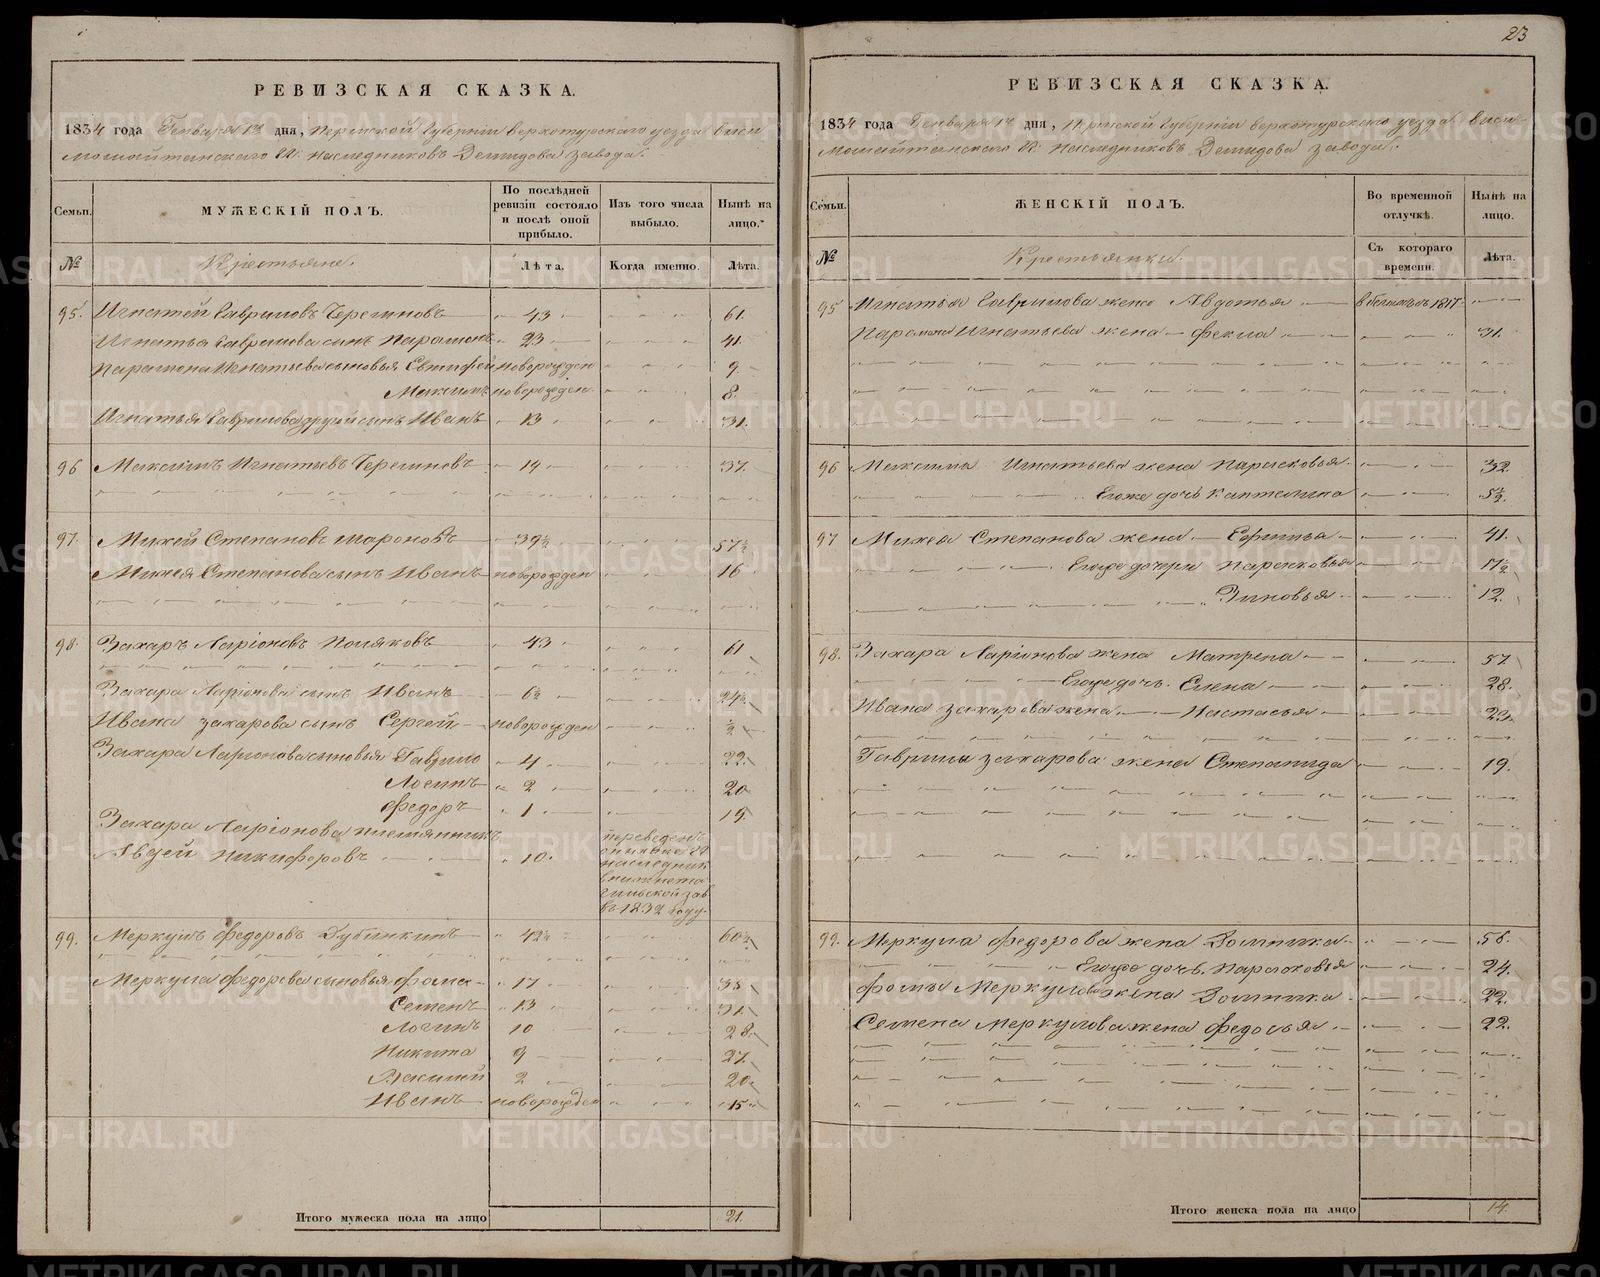 23
РЕВИЗСКАЯ СКАЗКА.
1834 года Генваря 12 дня, Пермской Губернiи Верхотурского уезда Виси-
мошайтанского Н: наследниковъ Демидова завода.
Семьи.
МУЖЕСКІЙ ПОЛЪ.
По послѣдней ревизіи состояло и послѣ оной прибыло.
Изъ того числа выбыло.
Нынѣ на лицо.
№
Крестьяне.
Лѣта.
Когда именно.
Лѣта.
95. Игнатей Гавриловъ Черемновъ 43 61.
Игнатья Гаврилова сынъ Парамонъ 23 41.
Парамона Игнатьева сыновья Евтифей новорожден 9
Максимъ новорожден 8.
Игнатья Гаврилова другой сынъ Иванъ 13 31.
96 Максимъ Игнатьевъ Черемновъ 19 37.
97. Михей Степановъ Шароновъ 39½ 57½
Михея Степанова сынъ Иванъ новорожден 16
98. Захаръ Ларiоновъ Поляковъ 43 61
Захара Ларiонова сынъ Иванъ 6½ 24½
Ивана Захарова сынъ Сергей новорожден ½
Захара Ларiонова сыновья Гаврило 4 22.
Логинъ 2 20
Федоръ 1 19.
Захара Ларiонова племянникъ
Авдей Никифоровъ 10.
переведенъ
наследник
в нижнета
гильской зав
въ 1832 году.
99. Меркулъ Федоровъ Дубинкинъ 42½ 60½
Меркула Федорова сыновья Фома 17 35
Семенъ 13 31.
Логинъ 10 28.
Никита 9 27.
Василей 2 20.
Иванъ новорожден 15
Итого мужеска пола на лицо 21.
РЕВИЗСКАЯ СКАЗКА.
1834 года Генваря 12 дня, Пермской Губернiи Верхотурского уезда Виси-
мошайтанского Н: наследниковъ Демидова завода.
Семьи.
ЖЕНСКІЙ ПОЛЪ.
Во временной отлучкѣ.
Нынѣ на лицо.
№
Крестьянки.
Съ котораго времени.
Лѣта.
95 Игнатья Гаврилова жена Авдотья в бегахъ съ 1817
Парамона Игнатьева жена Фекла 31.
96 Максима Игнатьева жена Парасковья 32.
Егоже дочь Каптелина 5½.
97 Михея Степанова жена Ефимья 41.
Егоже дочери Парасковья 17½
Зиновья 12.
98. Захара Ларiонова жена Матрена 57.
Егоже дочь Елена 28.
Ивана Захарова жена Настасья 23.
Гаврилы Захарова жена Степанида 19.
99. Меркула Федорова жена Домника 58.
Егоже дочь Парасковья 24.
Фомы Меркулова жена Домника 22.
Семена Меркулова жена Федосья 22.
Итого женска пола на лицо 14.
METRIKI.GASO-URAL.RU